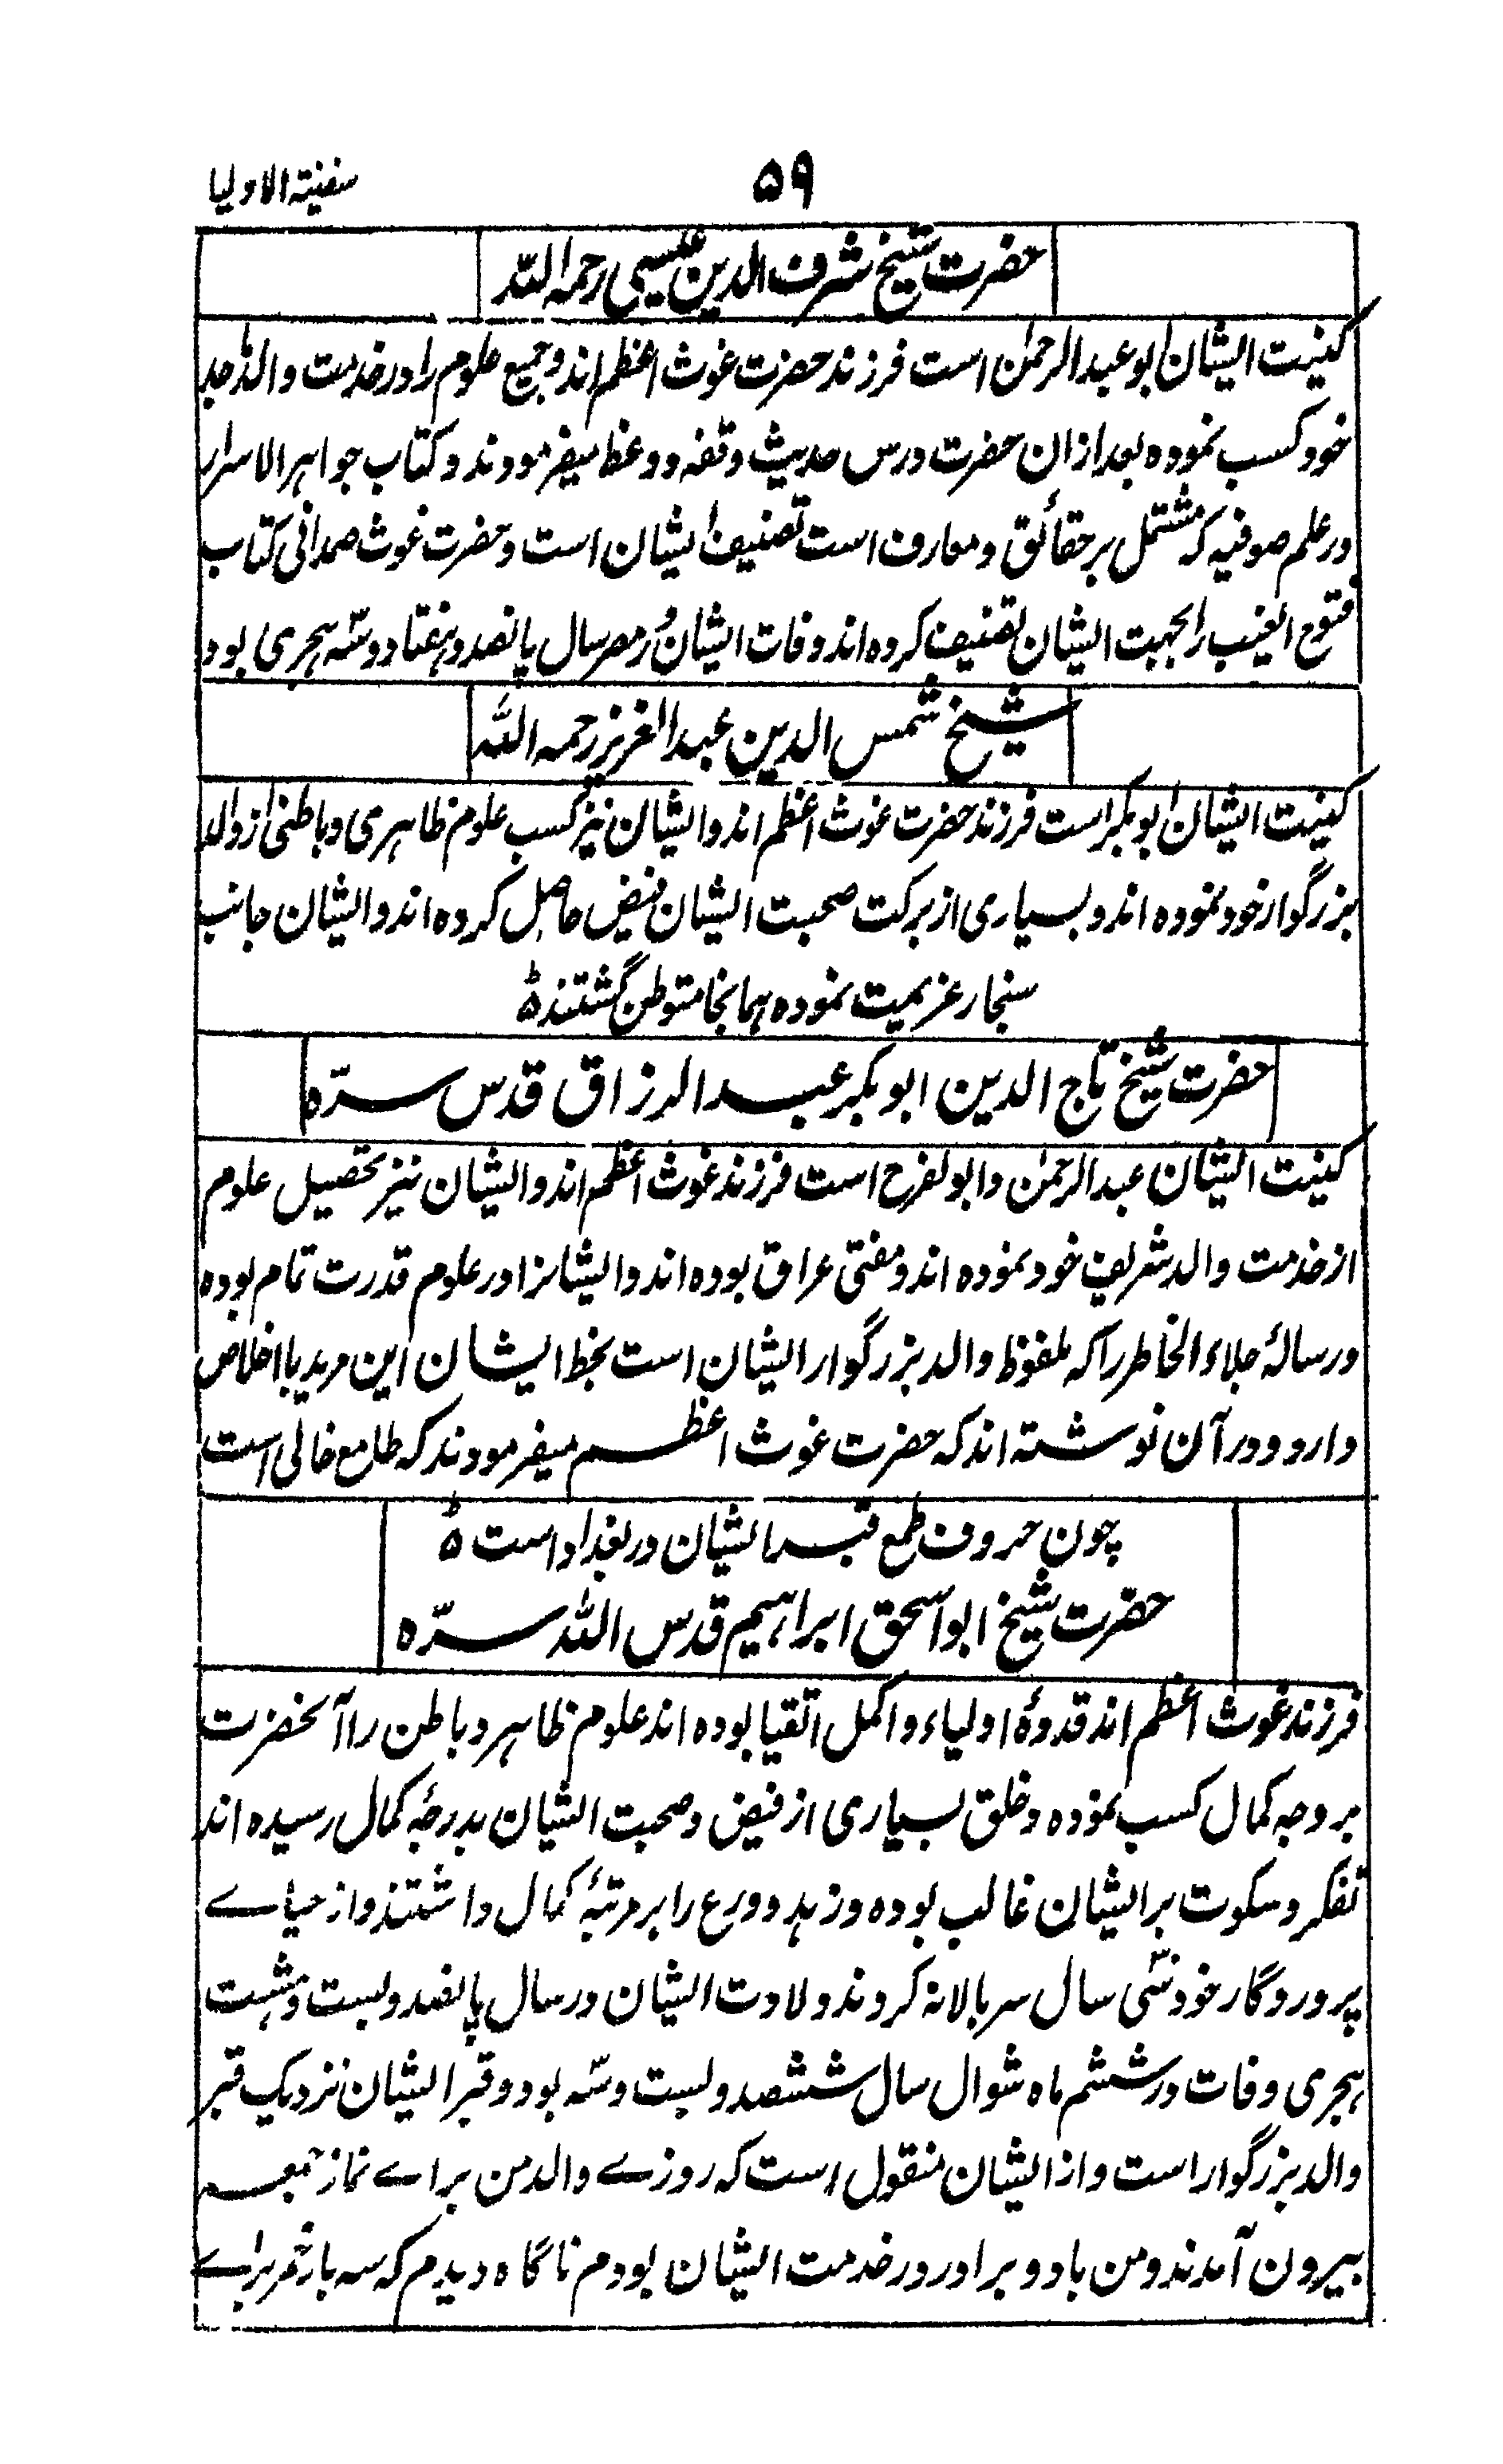 ۵۹
سفینۃ الاولیا
حضرت شیخ شرف الدین عیسیٰ رحمہ اللہ
کنیت ایشان ابو عبد الرحمٰن است فرزند حضرت غوث اعظم اند و جمیع علوم را در خدمت والد ماجد
خود کسب نموده بعد ازان حضرت درس حدیث و فقه و وعظ میفرمودند و کتاب جواهر الاسرار
در علم صوفیه که مشتمل بر حقائق و معارف است تصنیف ایشان است و حضرت غوث صمدانی کتاب
فتوح الغیب را بجهت ایشان تصنیف کرده اند وفات ایشان در مصر سال پانصد و هفتاد و سه هجری بود
شیخ شمس الدین عبد العزیز رحمہ اللہ
کنیت ایشان ابو بکر است فرزند حضرت غوث اعظم اند و ایشان نیز کسب علوم ظاهری و باطنی از والد
بزرگوار خود نموده اند و بسیاری از برکت صحبت ایشان فیض حاصل کرده اند و ایشان جانب
سنجار عزیمیت نموده همانجا متوطن گشتند
حضرت شیخ تاج الدین ابو بکر عبد الرزاق قدس سرّه
کنیت ایشان عبد الرحمٰن و ابو لفرح است فرزند غوث اعظم اند و ایشان نیز تحصیل علوم
از خدمت والد شریف خود نموده اند و مفتی عراق بوده اند و ایشانرا در علوم قدرت تمام بوده
و رسالۂ جلاء الخاطر را که ملفوظ والد بزرگوار ایشان است بخط ایشان این مرید با اخلاص
دارد و در آن نوشته اند که حضرت غوث اعظم میفرمودند که طامع خالی است
چون حروف طمع قبر ایشان در بغداد است
حضرت شیخ ابو اسحق ابراهیم قدس اللہ سرّه
فرزند غوث اعظم اند قدوۂ اولیاء و اکمل اتقیا بوده اند علوم ظاهر و باطن را آنحضرت
بر وجه کمال کسب نموده و خلق بسیاری از فیض و صحبت ایشان بدرجۂ کمال رسیده اند
تفکر و سکوت بر ایشان غالب بوده و زهد و ورع را بر مرتبۂ کمال داشتند و از حیاے
پروردگار خود سی سال سر بالا نه کردند ولادت ایشان در سال پانصد و بست و هشت
هجری وفات در ششم ماه شوال سال ششصد و بست و سه بود و قبر ایشان نزدیک قبر
والد بزرگوار است و از ایشان منقول است که روزے والد من براے نماز جمعه
بیرون آمدند و من با دو برادر در خدمت ایشان بودم ناگاه دیدم که سه بار خمر براے